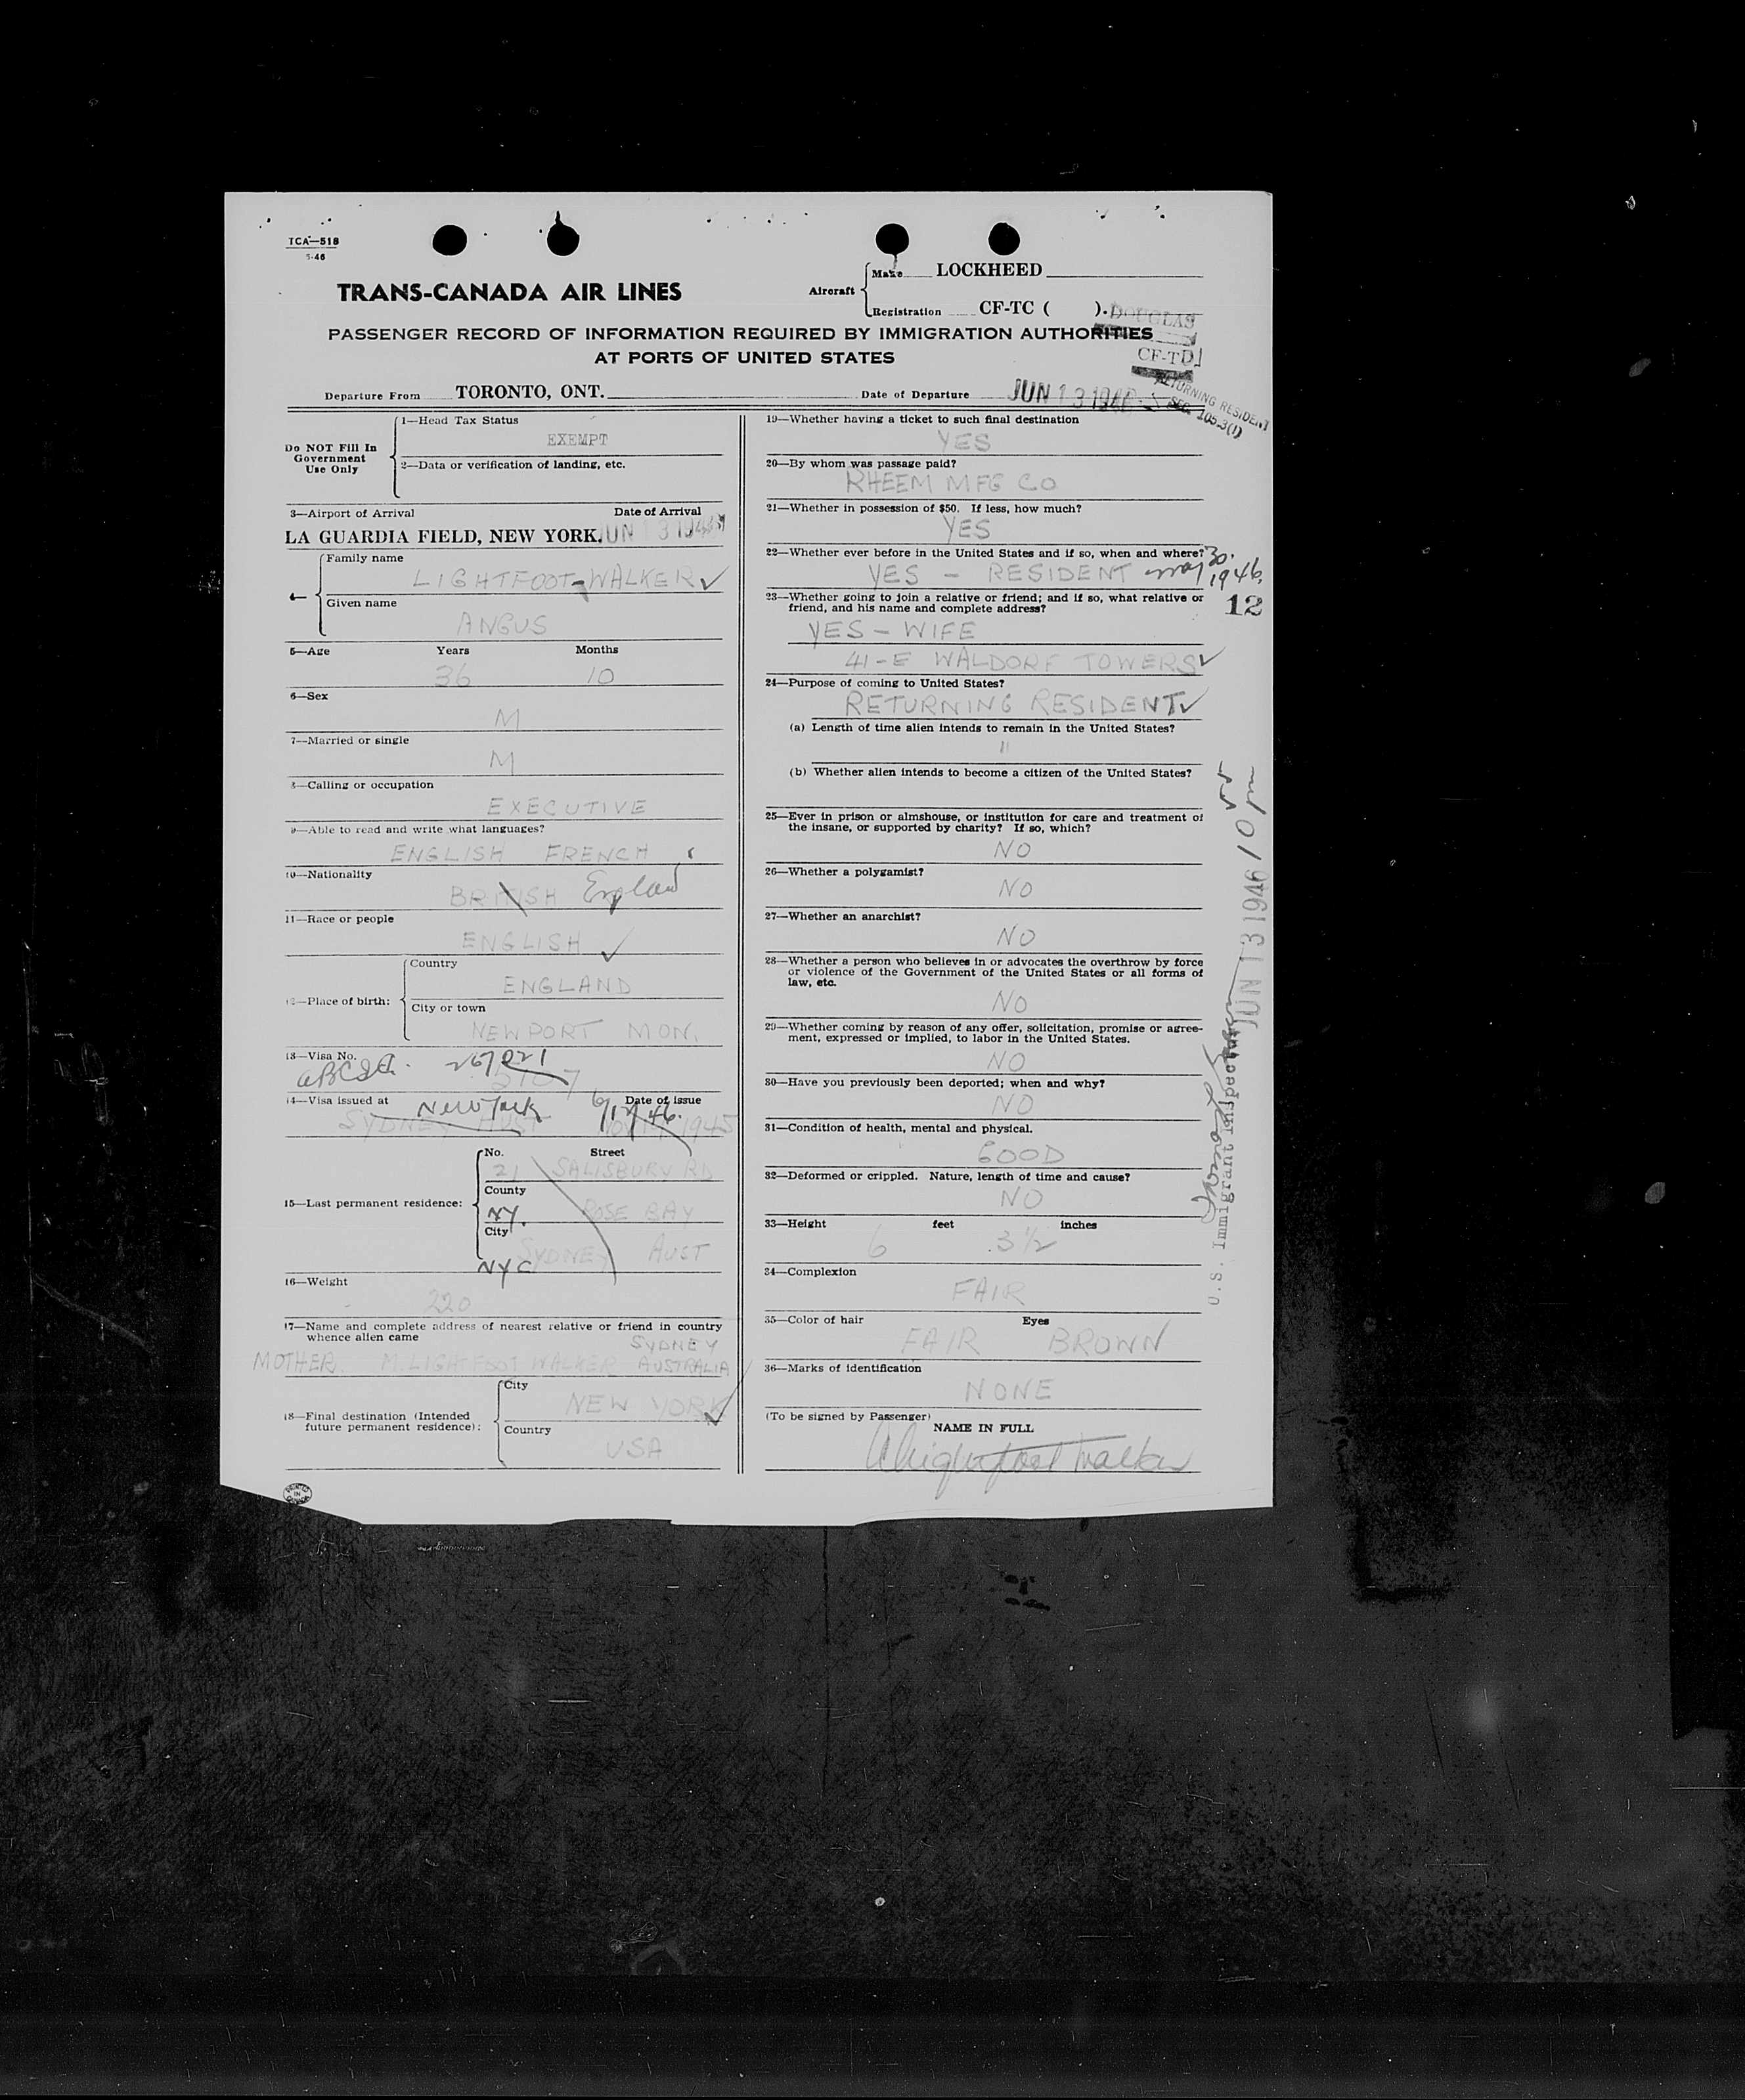 TCA—518
1-46
TRANS-CANADA AIR LINES
Aircraft
Make LOCKHEED
Registration CF-TC ( ).
DOUGLAS
CF-TD
PASSENGER RECORD OF INFORMATION REQUIRED BY IMMIGRATION AUTHORITIES
AT PORTS OF UNITED STATES
RETURNING RESIDENT
SEC. 105.3(1)
Departure From TORONTO, ONT. Date of Departure JUN 13 1946
Do NOT Fill In
Government
Use Only
1—Head Tax Status
EXEMPT
2—Data or verification of landing, etc.
3—Airport of Arrival Date of Arrival
LA GUARDIA FIELD, NEW YORK. JUN 13 1946
4—
Family name
LIGHTFOOT-WALKER ✓
Given name
ANGUS
5—Age Years Months
36 10
6—Sex
M
7—Married or single
M
8—Calling or occupation
EXECUTIVE
9—Able to read and write what languages?
ENGLISH FRENCH
10—Nationality
BRITISH England
11—Race or people
ENGLISH ✓
12—Place of birth:
Country
ENGLAND
City or town
NEWPORT MON.
13—Visa No.
267021
14—Visa issued at New York Date of issue
6/12/46.
SYDNEY AUST 1945
15—Last permanent residence:
No. Street
21 SALISBURY RD
County
NY. ROSE BAY
City
NYC SYDNEY AUST
16—Weight
220
17—Name and complete address of nearest relative or friend in country
whence alien came
SYDNEY
MOTHER. M. LIGHTFOOT WALKER AUSTRALIA
18—Final destination (Intended
future permanent residence):
City
NEW YORK ✓
Country
USA
PRINTED
IN
CANADA
19—Whether having a ticket to such final destination
YES
20—By whom was passage paid?
RHEEM MFG CO
21—Whether in possession of $50. If less, how much?
YES
22—Whether ever before in the United States and if so, when and where?
YES - RESIDENT May 30.
1946.
23—Whether going to join a relative or friend; and if so, what relative or
friend, and his name and complete address?
12
YES - WIFE
41-E WALDORF TOWERS ✓
24—Purpose of coming to United States?
RETURNING RESIDENT ✓
(a) Length of time alien intends to remain in the United States?
"
(b) Whether alien intends to become a citizen of the United States?
25—Ever in prison or almshouse, or institution for care and treatment of
the insane, or supported by charity? If so, which?
NO
26—Whether a polygamist?
NO
27—Whether an anarchist?
NO
28—Whether a person who believes in or advocates the overthrow by force
or violence of the Government of the United States or all forms of
law, etc.
NO
29—Whether coming by reason of any offer, solicitation, promise or agree-
ment, expressed or implied, to labor in the United States.
NO
30—Have you previously been deported; when and why?
NO
31—Condition of health, mental and physical.
GOOD
32—Deformed or crippled. Nature, length of time and cause?
NO
33—Height feet inches
6 3½
34—Complexion
FAIR
35—Color of hair Eyes
FAIR BROWN
36—Marks of identification
NONE
(To be signed by Passenger)
NAME IN FULL
A Lightfoot Walker
JUN 13 1946
U.S. Immigrant Inspector